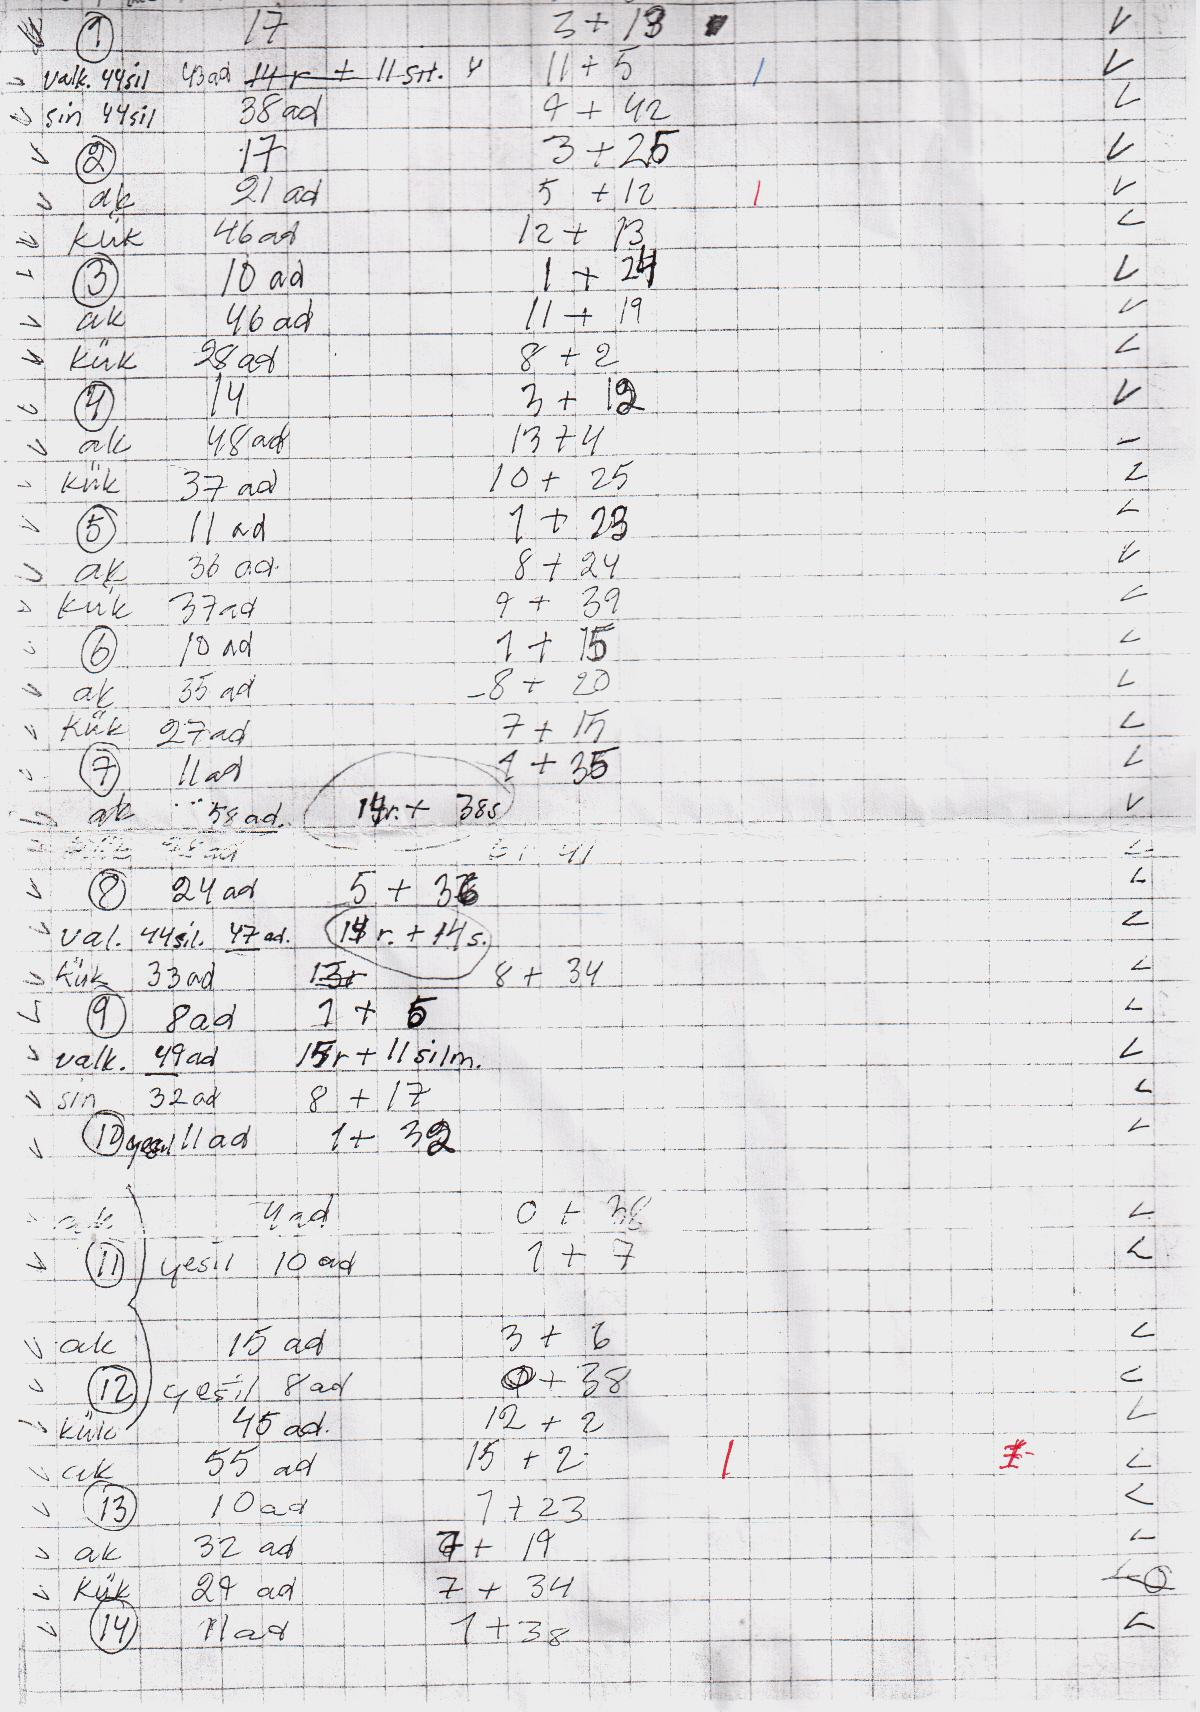 ① 17 3 + 13
valk. 44sil 43ad 11 + 5
sin 44sil 38ad 9 + 42
② 17 3 + 25
ak 21 ad 5 + 12
kük 46ad 12 + 13
③ 10 ad 1 + 24
ak 46 ad 11 + 19
kük 28ad 8 + 2
④ 14 3 + 12
ak 48ad 13 + 4
kük 37 ad 10 + 25
⑤ 11 ad 1 + 23
ak 36 ad 8 + 24
kük 37ad 9 + 39
⑥ 10 ad 1 + 15
ak 35 ad 8 + 20
kük 27ad 7 + 15
⑦ 11ad 1 + 35
ak 58 ad. 14r. + 38s
⑧ 24ad 5 + 36
val. 44sil. 47ad. 14 r. + 14 s.
kük 33ad 13r 8 + 34
⑨ 8ad 1 + 5
valk. 49ad 15r + 11 silm.
sin 32ad 8 + 17
⑩ yesil 11ad 1 + 32
ak 4ad 0 + 38
⑪ yesil 10 ad 1 + 7
ak 15 ad 3 + 6
⑫ yesil 8ad + 38
kük 45 ad. 12 + 2
ak 55 ad 15 + 2
⑬ 10ad 1 + 23
ak 32 ad + 19
kük 29 ad 7 + 34
⑭ 11ad 1 + 38